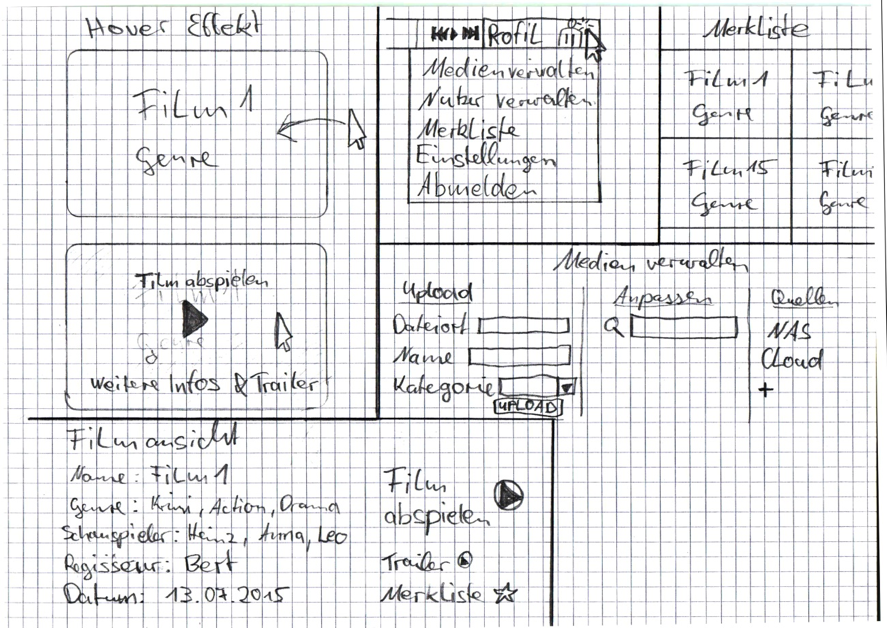 Hover Effekt
Film 1
Genre
Film abspielen
Genre
weitere Infos & Trailer
Profil
Medienverwalten
Nutzer verwalten
Merkliste
Einstellungen
Abmelden
Merkliste
Film 1
Genre
Film 15
Genre
Medien verwalten
Upload
Dateiort
Name
Kategorie
UPLOAD
Anpassen
Q
Quellen
NAS
Cloud
+
Filmansicht
Name: Film 1
Genre: Krimi, Action, Drama
Schauspieler: Heinz, Anna, Leo
Regisseur: Bert
Datum: 13.07.2015
Film
abspielen
Trailer
Merkliste